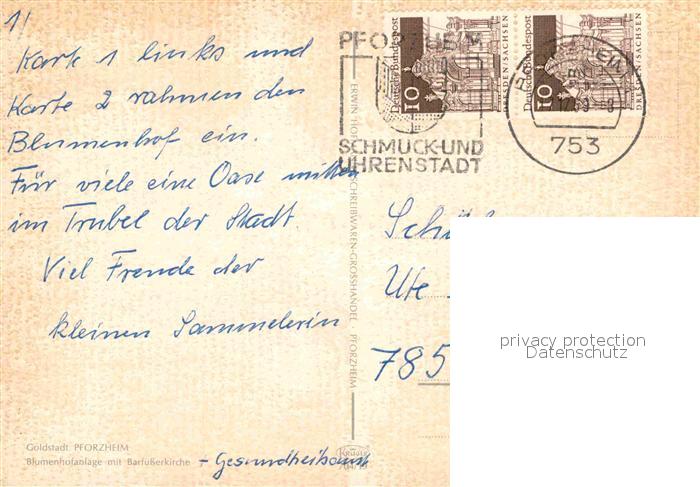 1/
Karte 1 links und
Karte 2 rahmen den
Blumenhof ein.
Für viele eine Oase mitten
im Trubel der Stadt.
Viel Freude der
kleinen Sammelerin
Goldstadt PFORZHEIM
Blumenhofanlage mit Barfußerkirche
- Gesundheitsamt
PFORZHEIM
SCHMUCK-UND
UHRENSTADT
Deutsche Bundespost
10
DRESDEN/SACHSEN
Deutsche Bundespost
10
DRESDEN/SACHSEN
753
SCHREIBWAREN-GROSSHANDEL · PFORZHEIM
KRÜGER
Ute
785
privacy protection
Datenschutz